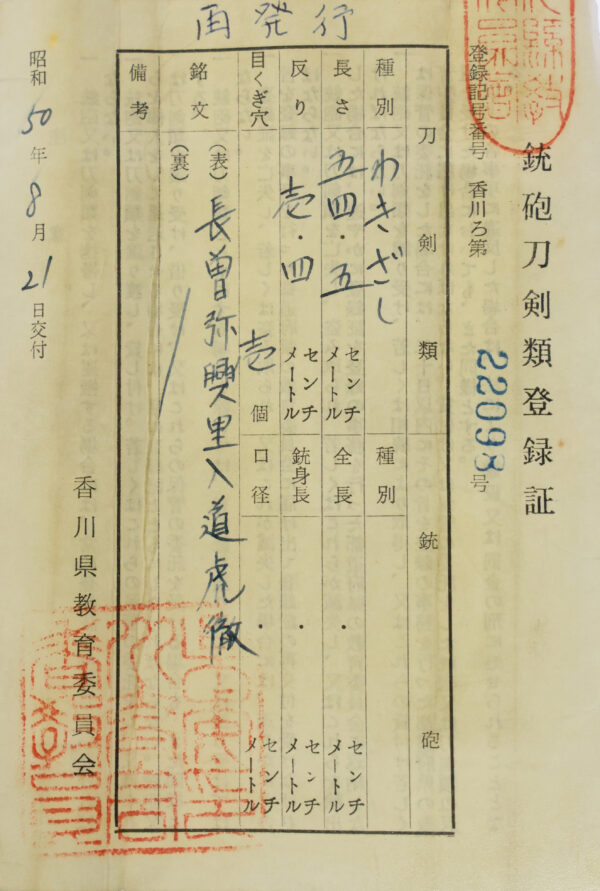 再発行
銃砲刀剣類登録証
登録記号番号 香川ろ第22098号
刀剣類 銃砲
種別 わきざし 種別
長さ 五四・五 センチメートル 全長 ・ センチメートル
反り 壱・四 センチメートル 銃身長 ・ センチメートル
目くぎ穴 壱個 口径 ・ センチメートル
銘文 (表) 長曽弥興里入道虎徹
(裏)
備考
昭和50年8月21日交付
香川県教育委員会